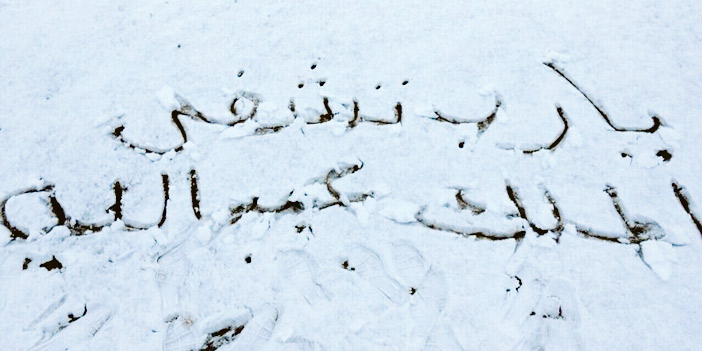 يارب تشفي
الملك عبدالله